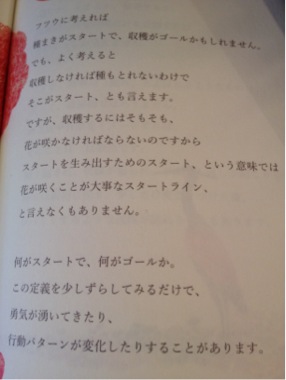 フツウに考えれば
種まきがスタートで、収穫がゴールかもしれません。
でも、よく考えると
収穫しなければ種もとれないわけで
そこがスタート、とも言えます。
ですが、収穫するにはそもそも、
花が咲かなければならないのですから
スタートを生み出すためのスタート、という意味では
花が咲くことが大事なスタートライン、
と言えなくもありません。
何がスタートで、何がゴールか。
この定義を少しずらしてみるだけで、
勇気が湧いてきたり、
行動パターンが変化したりすることがあります。